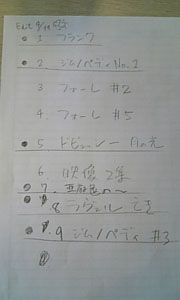 ● 1 フランク
● 2 ジムノペディ No.1
3 フォーレ #2
4. フォーレ #5
● 5 ドビュッシー 月の光
6. 映像2集
● 7. 亜麻色の〜
● 8 ラヴェル
● 9 ジムノペディ #3